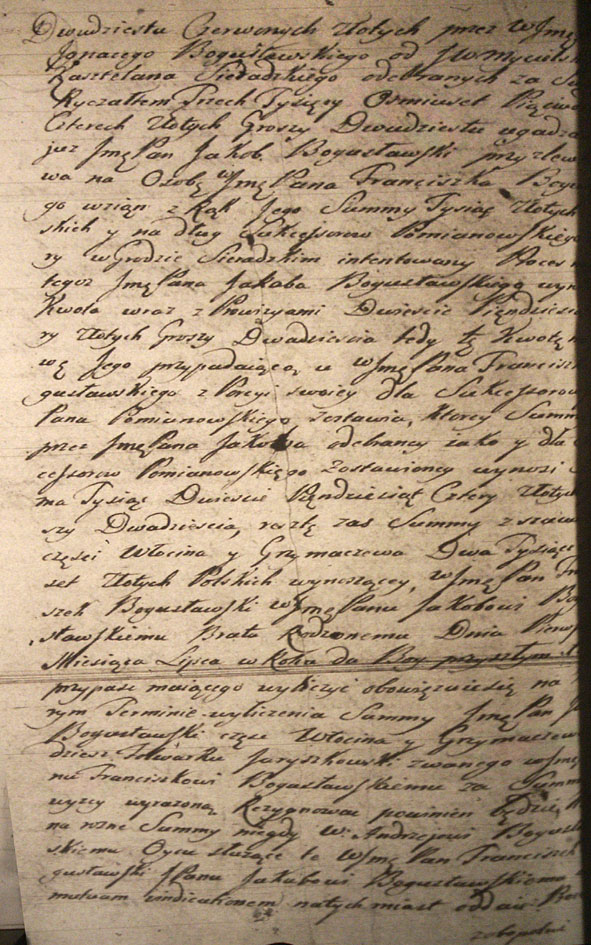 Dwudziestu Czerwonych Złotych przez WJmę
Ignacego Bogusławskiego od JW Mycielsk
Kasztelana Sieradzkiego odebranych za
Ryczałtem Trzech Tysięcy Osmiuset
Czterech Złotych Groszy Dwudziestu ugadza
już Jmę Pan Jakob Bogusławski przylew
wa na Osobę WJmę Pana Franciszka Bog
go wziąn z Rąk Jego Summy Tysiąc Złotych
skich y na dług Sukcessorow Pomianowskiego
ry w Grodzie Sieradzkim intentowany Proces
tegoż Jmę Pana Jakoba Bogusławskiego wyn
Kwota wraz z Prowizyami Dwieście Pięndziesi
ry Złotych Groszy Dwadzieścia tedy tę Kwotę
wę Jego przypadaiącą u WJmę Pana Francisz
gusławskiego z Porcyi swoiey dla Sukcessorow
Pana Pomianowskiego zostawia, ktorey Summ
przez Jmę Pana Jakoba odebraney iako y dla
cessorow Pomianowskiego zostawioney wynosi
ma Tysiąc Dwieście Pięndziesiąt Cztery Złotych
szy Dwadzieścia, resztę zaś Summy z
części Włocina y Grymaczewa Dwa Tysiące
set Złotych Polskich wynoszącey, WJmę Pan Fran
szek Bogusławski WJmę Panu Jakobowi Bog
sławskiemu Bratu Rodzonemu Dnia Pierw
Miesiąca Lipca w Roku da Bog przyszłym
przypaść maiącego wyliczyć obowięzuie się na
rym Terminie wyliczenia Summy Jmę Pan J
Bogusławski część Włocina y Grymaczew
dzież Folwarku Jaryszkowski zwanego WJmę
nu Franciszkowi Bogusławskiemu za Summ
wyżey wyrażoną Rezygnować powinien będzie
na rożne Summy niegdy W Andrzejowi Bogus
skiemu Oycu służące te WJmę Pan Franciszek
gusławski JPanu Jakubowi Bogusławskiemu
mutuam vindicationem natychmiast oddaie
zobopolni